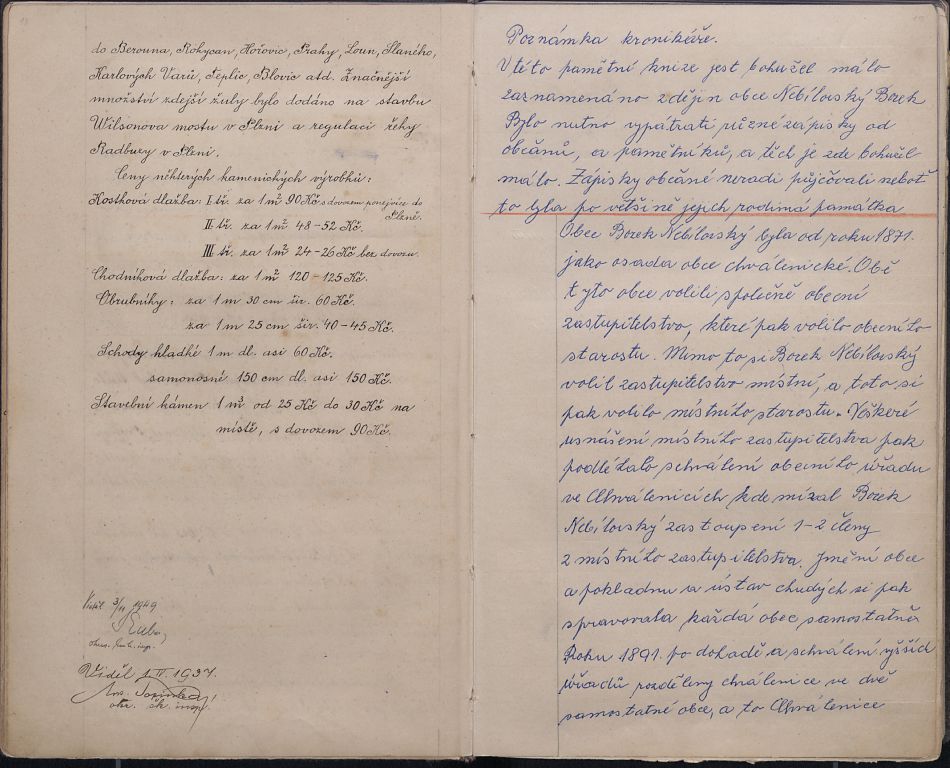 do Berouna, Rokycan, Hořovic, Prahy, Loun, Slaného,
Karlových Varů, Teplic, Blovic atd. Značnější
množství zdejší žuly bylo dodáno na stavbu
Wilsonova mostu v Plzni a regulaci řeky
Radbuzy v Plzni.
Ceny některých kamenických výrobků:
Kostková dlažba: I tř. za 1 m² 90 Kč s dovozem ponejvíce do
Plzně.
II tř. za 1 m² 48-52 Kč.
III tř. za 1 m² 24-26 Kč bez dovozu.
Chodníková dlažba: za 1 m² 120-125 Kč.
Obrubníky: za 1 m 30 cm šir. 60 Kč.
za 1 m 25 cm šir. 40-45 Kč.
Schody hladké 1 m dl. asi 60 Kč.
samonosné 150 cm dl. asi 150 Kč.
Stavební kámen 1 m³ od 25 Kč do 30 Kč na
místě, s dovozem 90 Kč.
Viděl 3/II 1949
Viděl 1. IV. 1937.
Jos.
okr. šk. insp.
Poznámka kronikáře.
V této pamětní knize jest bohužel málo
zaznamenáno z dějin obce Nebílovský Borek
Bylo nutno vypátrati různé zápisky od
občanů, a pamětníků, a těch je zde bohužel
málo. Zápisky občané neradi půjčovali neboť
to byla po většině jejich rodinná památka
Obec Borek Nebílovský byla od roku 1871.
jako osada obce chválenické. Obě
tyto obce volili společně obecní
zastupitelstvo, které pak volilo obecního
starostu. Mimo to si Borek Nebílovský
volil zastupitelstvo místní, a toto si
pak volilo místního starostu. Veškeré
usnášení místního zastupitelstva pak
podléhalo schválení obecního úřadu
ve Chválenicích kde mízal Borek
Nebílovský zastoupení 1-2 členy
z místního zastupitelstva. Jmění obce
a pokladnu a ústav chudých si pak
spravovala každá obec samostatně
Roku 1891. po dohadě a schválení vyšších
úřadů rozděleny chválenice ve dvě
samostatné obce, a to Chválenice